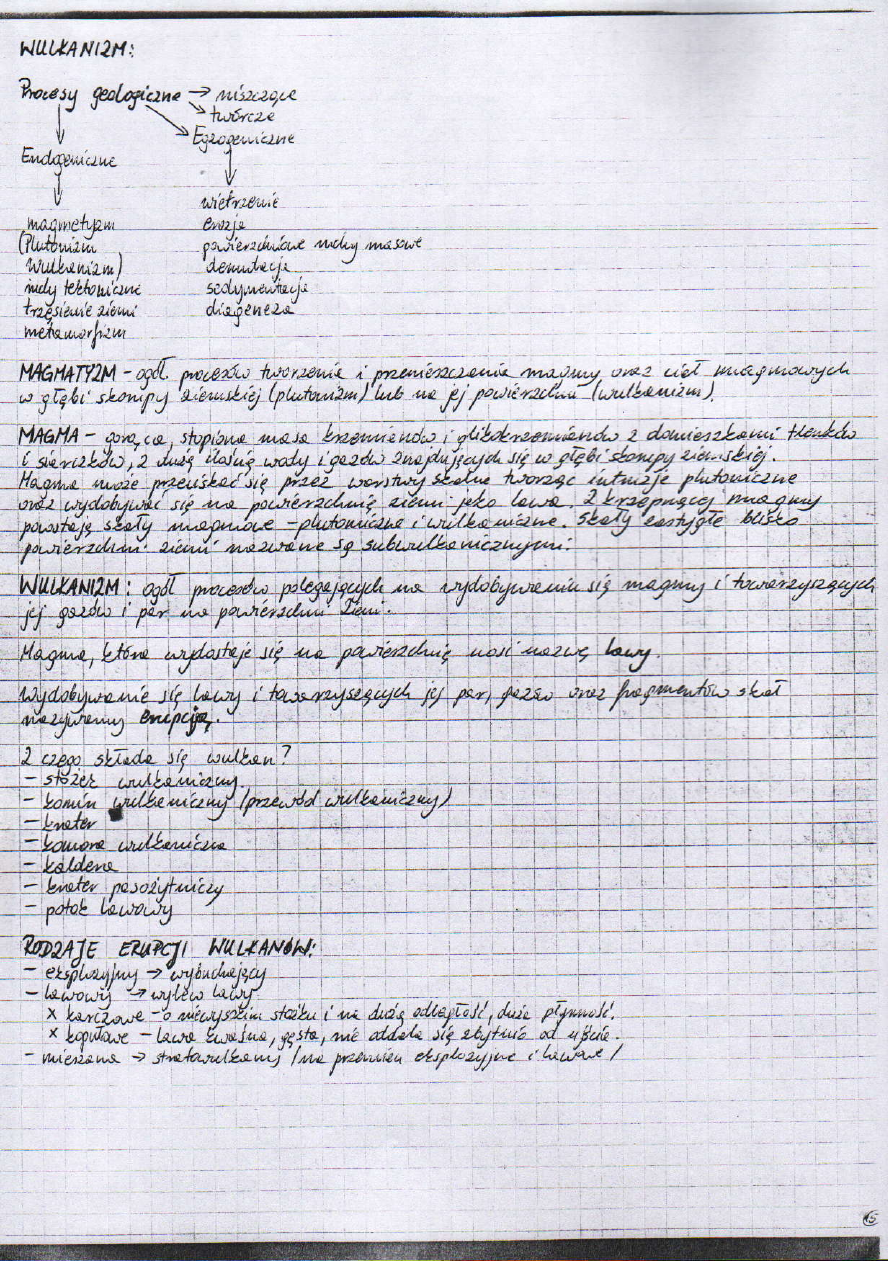 WULKANIZM:
Procesy geologiczne → niszczące
→ twórcze
Egzogeniczne
Endogeniczne
wietrzenie
magmatyzm
erozja
(Plutonizm
powierzchniowe ruchy masowe
Wulkanizm)
denudacja
ruchy tektoniczne
sedymentacja
trzęsienie ziemi
diageneza
metamorfizm
MAGMATYZM - ogół procesów tworzenia i przemieszczania magmy oraz ciał magmowych
w głębi skorupy ziemskiej (plutonizm) lub na jej powierzchni (wulkanizm).
MAGMA - gorąca, stopiona masa krzemianów i glikokrzemianów z domieszkami tlenków
i siarczków, z dużą ilością wody i gazów znajdujących się w głębi skorupy ziemskiej.
Magma może przeciskać się przez warstwy skalne tworząc intruzje plutoniczne
oraz wydobywać się na powierzchnię ziemi jako lawa. Z krzepnącej magmy
powstają skały magmowe - plutoniczne i wulkaniczne. Skały zastygłe blisko
powierzchni ziemi nazwane są subwulkanicznymi.
WULKANIZM: ogół procesów polegających na wydobywaniu się magmy i towarzyszących
jej gazów i par na powierzchni Ziemi.
Magma, która wydostaje się na powierzchnię nosi nazwę lawy.
Wydobywanie się lawy i towarzyszących jej par, gazów oraz fragmentów skał
nazywamy erupcją.
Z czego składa się wulkan?
- stożek wulkaniczny
- komin wulkaniczny (przewód wulkaniczny)
- krater
- komora wulkaniczna
- kaldera
- krater pasożytniczy
- potok lawowy
RODZAJE ERUPCJI WULKANÓW:
- eksplozyjny → wybuchający
- lawowy → wylew lawy
x tarczowe - o niewysokim stożku i na dużą odległość, duża płynność.
x kopułowe - lawa kwaśna, gęsta, nie oddala się zbytnio od ujścia.
- mieszana → stratowulkany /na przemian eksplozyjne i lawowe/
15